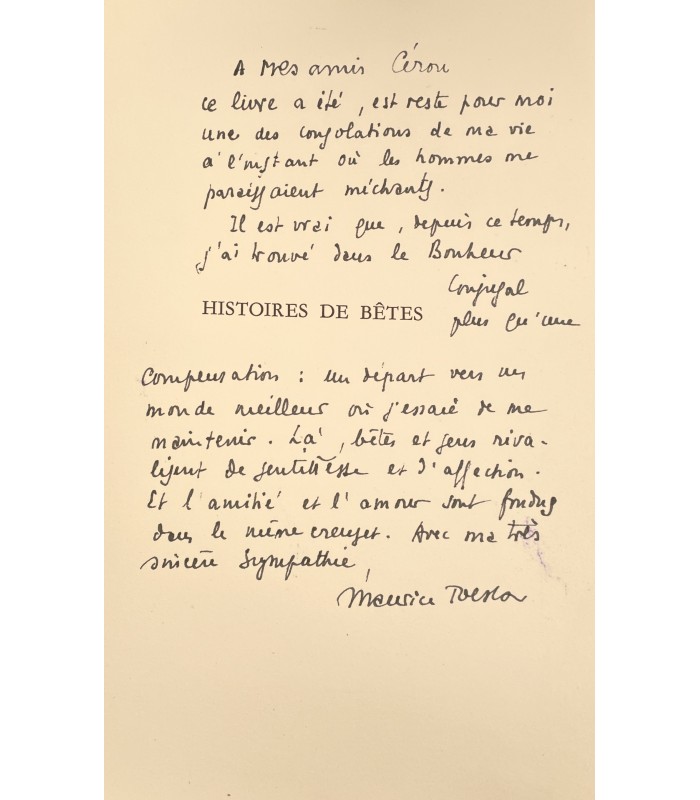 A mes amis Céron
ce livre a été, est reste pour moi
une des consolations de ma vie
à l'instant où les hommes me
paraissaient méchants.
Il est vrai que, depuis ce temps,
j'ai trouvé dans le Bonheur
Conjugal
HISTOIRES DE BÊTES
plus qu'une
Compensation : un départ vers un
monde meilleur où j'essaie de me
maintenir. Là, bêtes et gens riva-
lisent de gentillesse et d'affection.
Et l'amitié et l'amour sont fondus
dans le même creuset. Avec ma très
sincère Sympathie,
Maurice Toesca